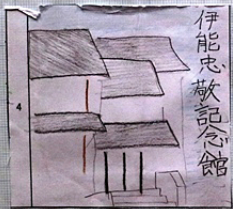 伊能忠敬記念館
4